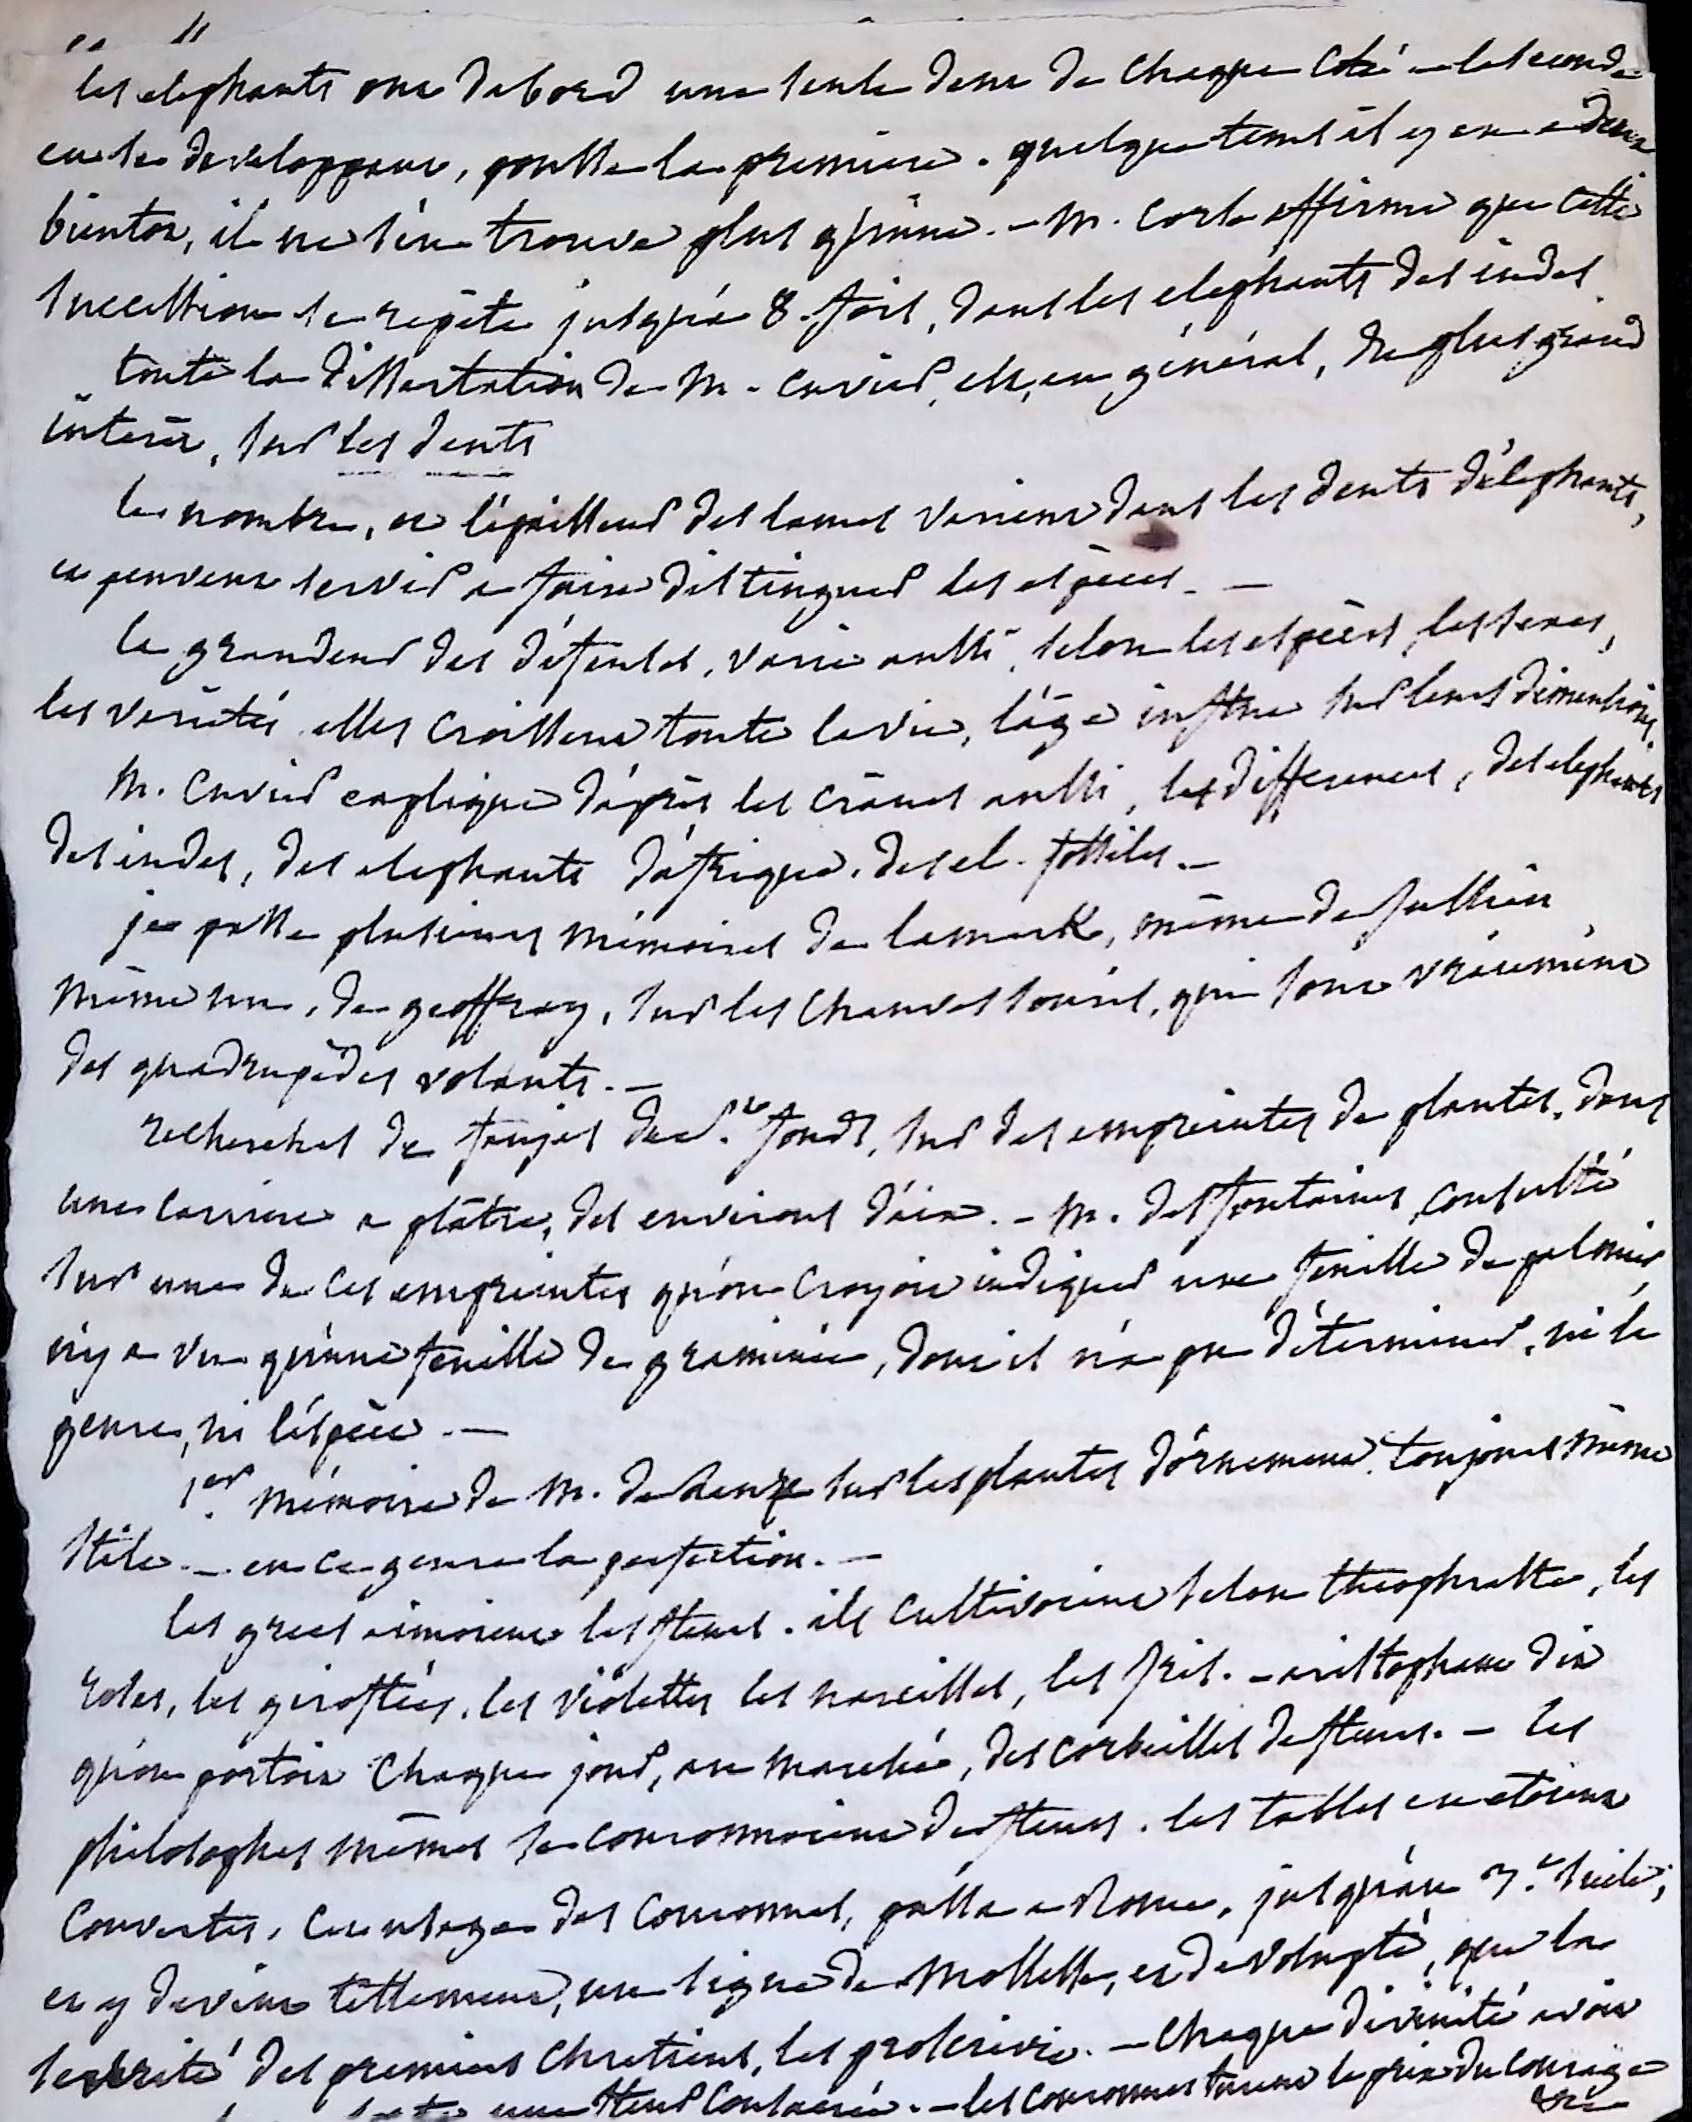 les elephants ont dabord une seule dent de chaque coté – la seconde
en se developpant, pousse la premiere. quelque tems il y en a deux
bientot, il ne s'en trouve plus qu'une. – M. Corse affirme que cette
succession se repète jusqu'à 8. fois, dans les elephants des indes
toute la dissertation de M. Cuvier, est, en général, du plus grand
interêt, sur les dents
le nombre, et l'épaisseur des lames varient dans les dents d'élephants,
et peuvent servir a faire distinguer les espèces. –
la grandeur des défenses, varie aussi, selon les espèces, les sexes,
les variétés. elles croissent toute la vie, l'âge influe sur leurs dimensions.
M. Cuvier explique d'après les crânes aussi, les differences, des elephants
des indes, des elephants d'afrique, des el. fossiles. –
je passe plusieurs mémoires de lamark, même de Jussieu
même un, de geoffroy, sur les chauves souris, qui sont vraiment
des quadrupèdes volants. –
recherches de faujas de St. fonds, sur des empreintes de plantes, dans
une carriere a plâtre, des environs d'aix. – M. desfontaines, consulté
sur une de ces empreintes qu'on croyoit indiquer une feuille de palmier
n'y a vu qu'une feuille de graminée, dont il n'a pu déterminer, ni le
genre, ni l'éspèce. –
1er. mémoire de M. deleuze sur les plantes d'ornement. toujours même
stile. – en ce genre la perfection. –
les grecs aimoient les fleurs. ils cultivoient selon theophraste, les
roses, les giroflées, les violettes les narcisses, les Iris. – aristophane dit
qu'on portoit chaque jour, au marché, des corbeilles de fleurs. – les
philosophes mêmes se couronnoient de fleurs. les tables en etoient
couvertes. cet usage des couronnes, passa a Rome, jusqu'au 7.e siecle,
et y devint tellement, un signe de mollesse, et de volupté, que la
sevérité des premiers chretiens, les proscrivit. – chaque divinité avoit
une fleur consacrée. – les couronnes furent le prix du courage